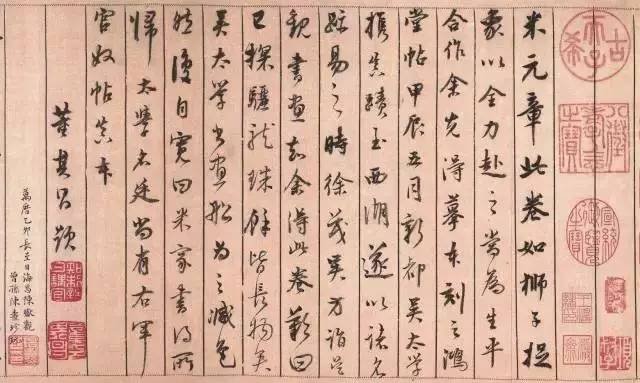 米元章此卷如獅子捉
象以全力赴之當為生平
合作余先得摹本刻之鴻
堂帖甲辰五月新都吳太學
携真蹟至西湖遂以諸名
跡易之時徐茂吳方詣吳
觀書畫知余得此卷歎曰
已探驪龍珠餘皆長物矣
吳太學書畫船為之減色
然復自寬曰米家書得所
歸太學名廷尚有右軍
官奴帖真本
董其昌題
萬曆乙卯長至日海昌陳瓛觀
曾孫陳查珍
古稀天子
八徵耄念之寶